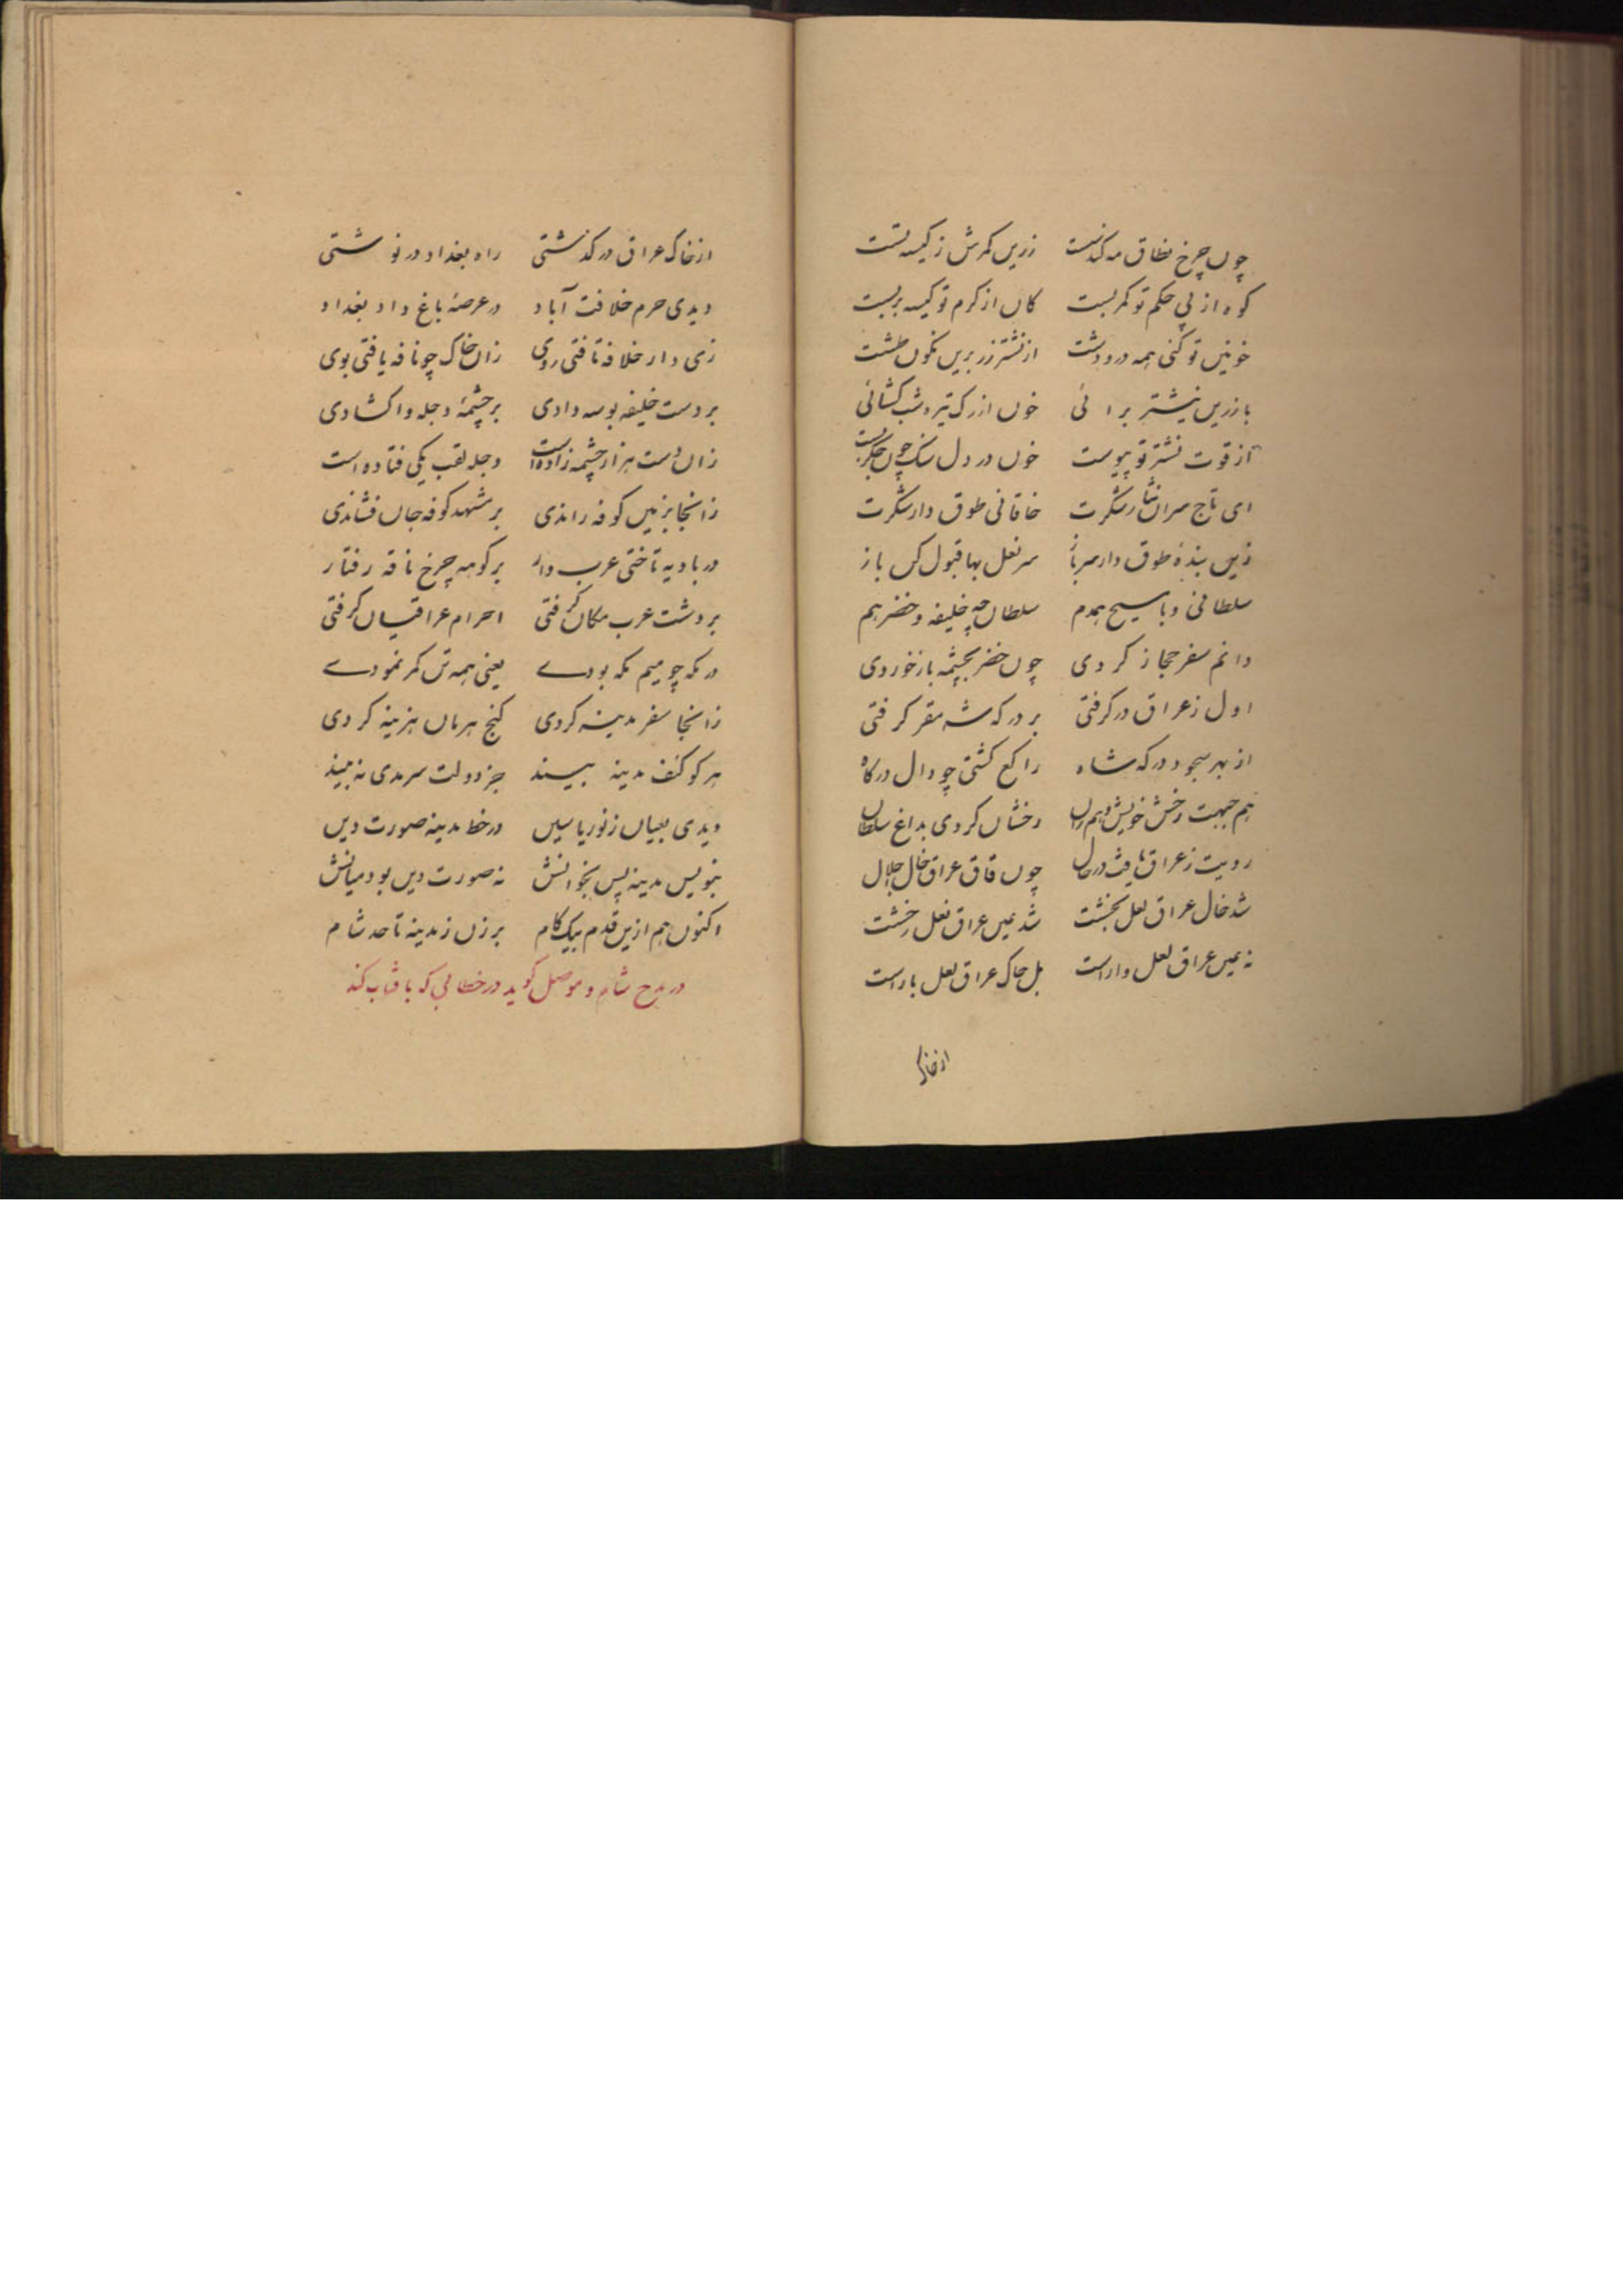 چون چرخ نطاق مه کدنست زرین کمرش ز کیسه تست
کوه از پی حکم تو کمر بست کان از کرم تو کیسه بر بست
خونین تو کنی همه در و دشت از نشتر زر برین نکون طشت
با زرین نیشتر برائی خون از رک تیره شب کشائی
از قوت نشتر تو پیوست خون در دل سنک چون جکر بست
ای تاج سران نثار شکرت خاقانی طوق دار شکرت
زین بندهٔ طوق دار سرباز سر نعل بها قبول کن باز
سلطانی و با مسیح همدم سلطان چه خلیفه و خضر هم
دانم سفر حجاز کردی چون خضر بچشمه باز خوردی
اول ز عراق در کرفتی بر درکه شه مقر کرفتی
از بهر سجود درکه شاه راکع کشتی چو دال درکاه
هم جبهت رخش خویش و هم ران رخشان کردی بداغ سلطان
رویت ز عراق یافت در حال چون قاق عراق خال جلال
شد خال عراق لعل بخشت شد عین عراق نعل رخشت
نه عین عراق لعل وار است بل خاک عراق لعل بار است
از خاک
از خاک عراق در کذشتی راه بغداد در نوشتی
دیدی حرم خلافت آباد در عرصهٔ باغ داد بغداد
زی دار خلافه تافتی روی زان خاک چو نافه یافتی بوی
بر دست خلیفه بوسه دادی بر چشمهٔ دجله واکشادی
زان دست هزار چشمه زاده است دجله لقب یکی فتاده است
زانجا بزمین کوفه راندی بر مشهد کوفه جان فشاندی
در بادیه تاختی عرب وار بر کوهه چرخ ناقه رفتار
بر دشت عرب مکان کرفتی احرام عراقیان کرفتی
در مکه چو میم مکه بودے یعنی همه تن کمر نمودے
زانجا سفر مدینه کردی کنج هرمان هزینه کردی
هر کو کنف مدینه بیند جز دولت سرمدی نه بیند
دیدی بعیان ز نور یاسین در خط مدینه صورت دین
بنویس مدینه پس بخوانش نه صورت دین بود میانش
اکنون هم ازین قدم بیک کام بر زن ز مدینه تا حد شام
در مدح شام و موصل کوید در خطابی که با آفتاب کند